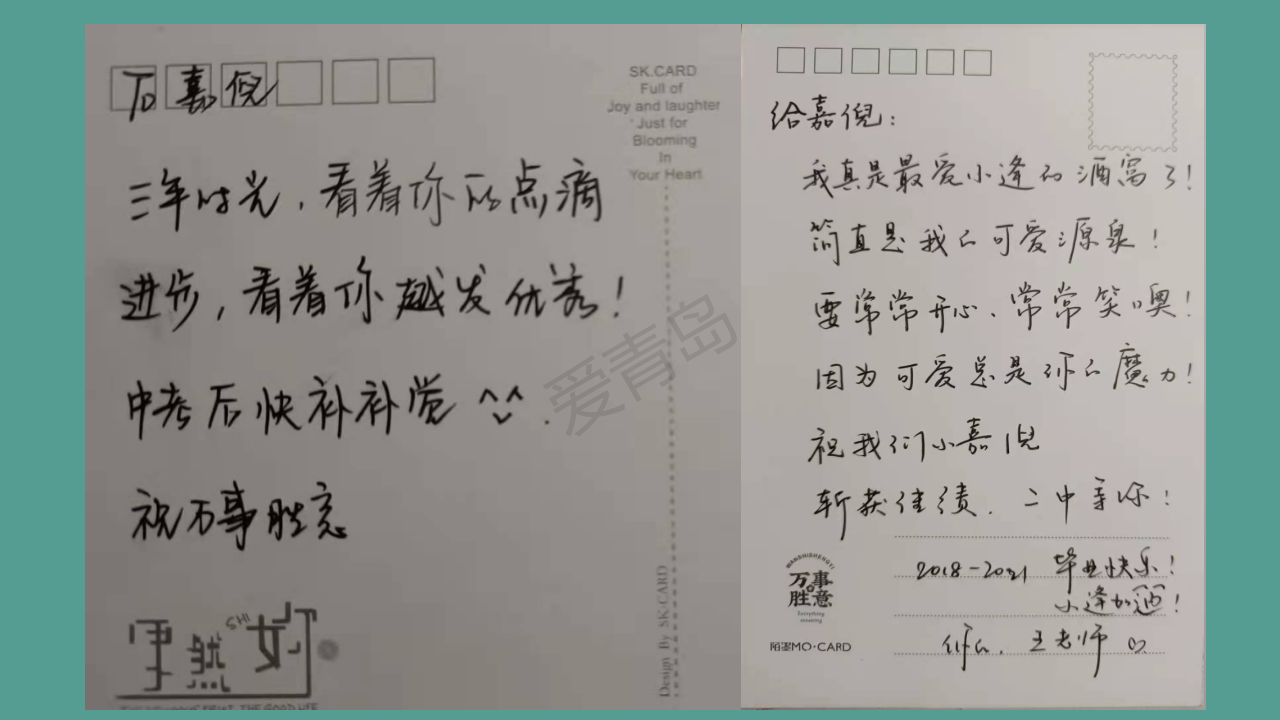 万嘉倪
三年时光，看着你的点滴
进步，看着你越发优秀！
中考后快补补觉 ^^
祝万事胜意
SHI
SK.CARD
Full of
Joy and laughter
Just for
Blooming
In
Your Heart
Design By SK·CARD
爱青岛
给嘉倪：
我真是最爱小逢的酒窝了！
简直是我的可爱源泉！
要常常开心、常常笑噢！
因为可爱总是你的魔力！
祝我们小嘉倪
斩获佳绩．二中等你！
WANSHISHENGYI
万事
胜意
Everything
陌墨MO·CARD
2018-2021 毕业快乐！
小逢加油！
你的．王老师